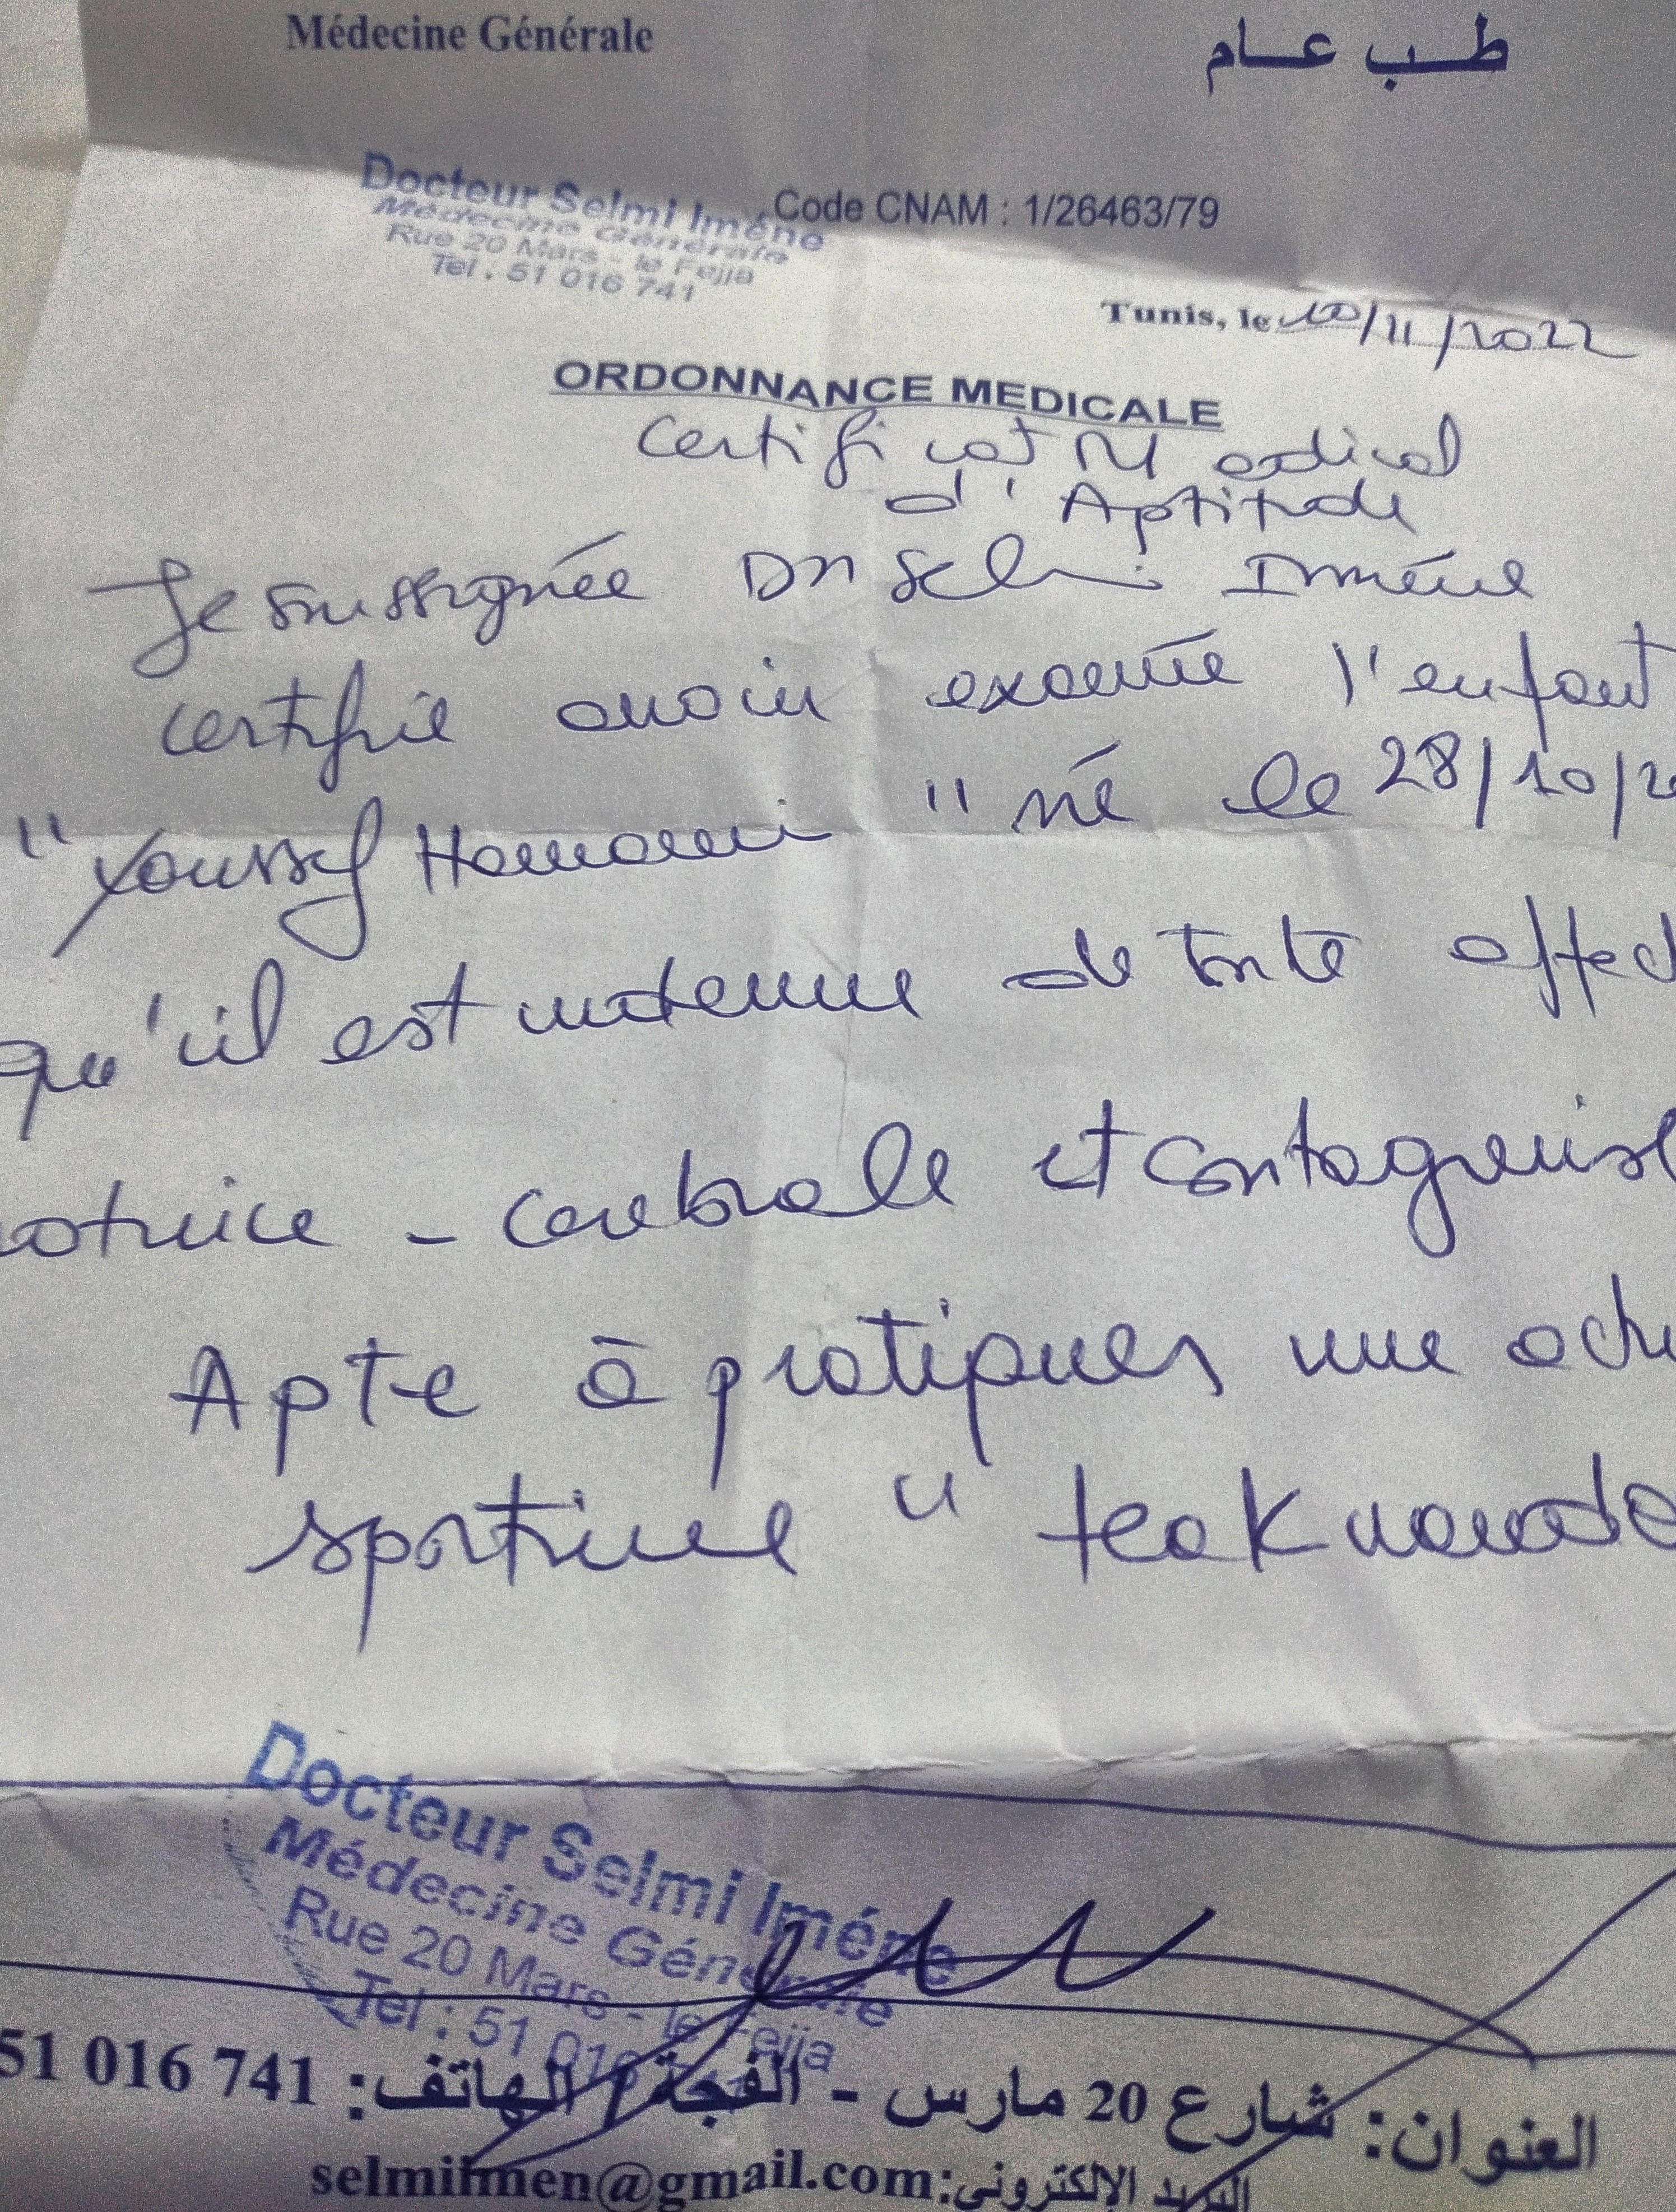 Médecine Générale
طب عام
Docteur Selmi Iméne
Médecine Générale
Rue 20 Mars - le Fejja
Tel : 51 016 741
Code CNAM : 1/26463/79
Tunis, le 10/11/2022
ORDONNANCE MEDICALE
Certificat Medical
d'Aptitude
Je soussignée Dr Selmi Iméne
certifie avoir examiné l'enfant
"Youssef Hamami" né le 28/10/2
qu'il est indemne de toute affect
otrice - cerebrale et contagieuse
Apte à pratiquer une acti
sportive " teakwondo
Docteur Selmi Iméne
Médecine Générale
Rue 20 Mars - le Fejja
Tel : 51 016
العنوان: شارع 20 مارس - الفجة / الهاتف: 51 016 741
البريد الإلكتروني: selmiimen@gmail.com